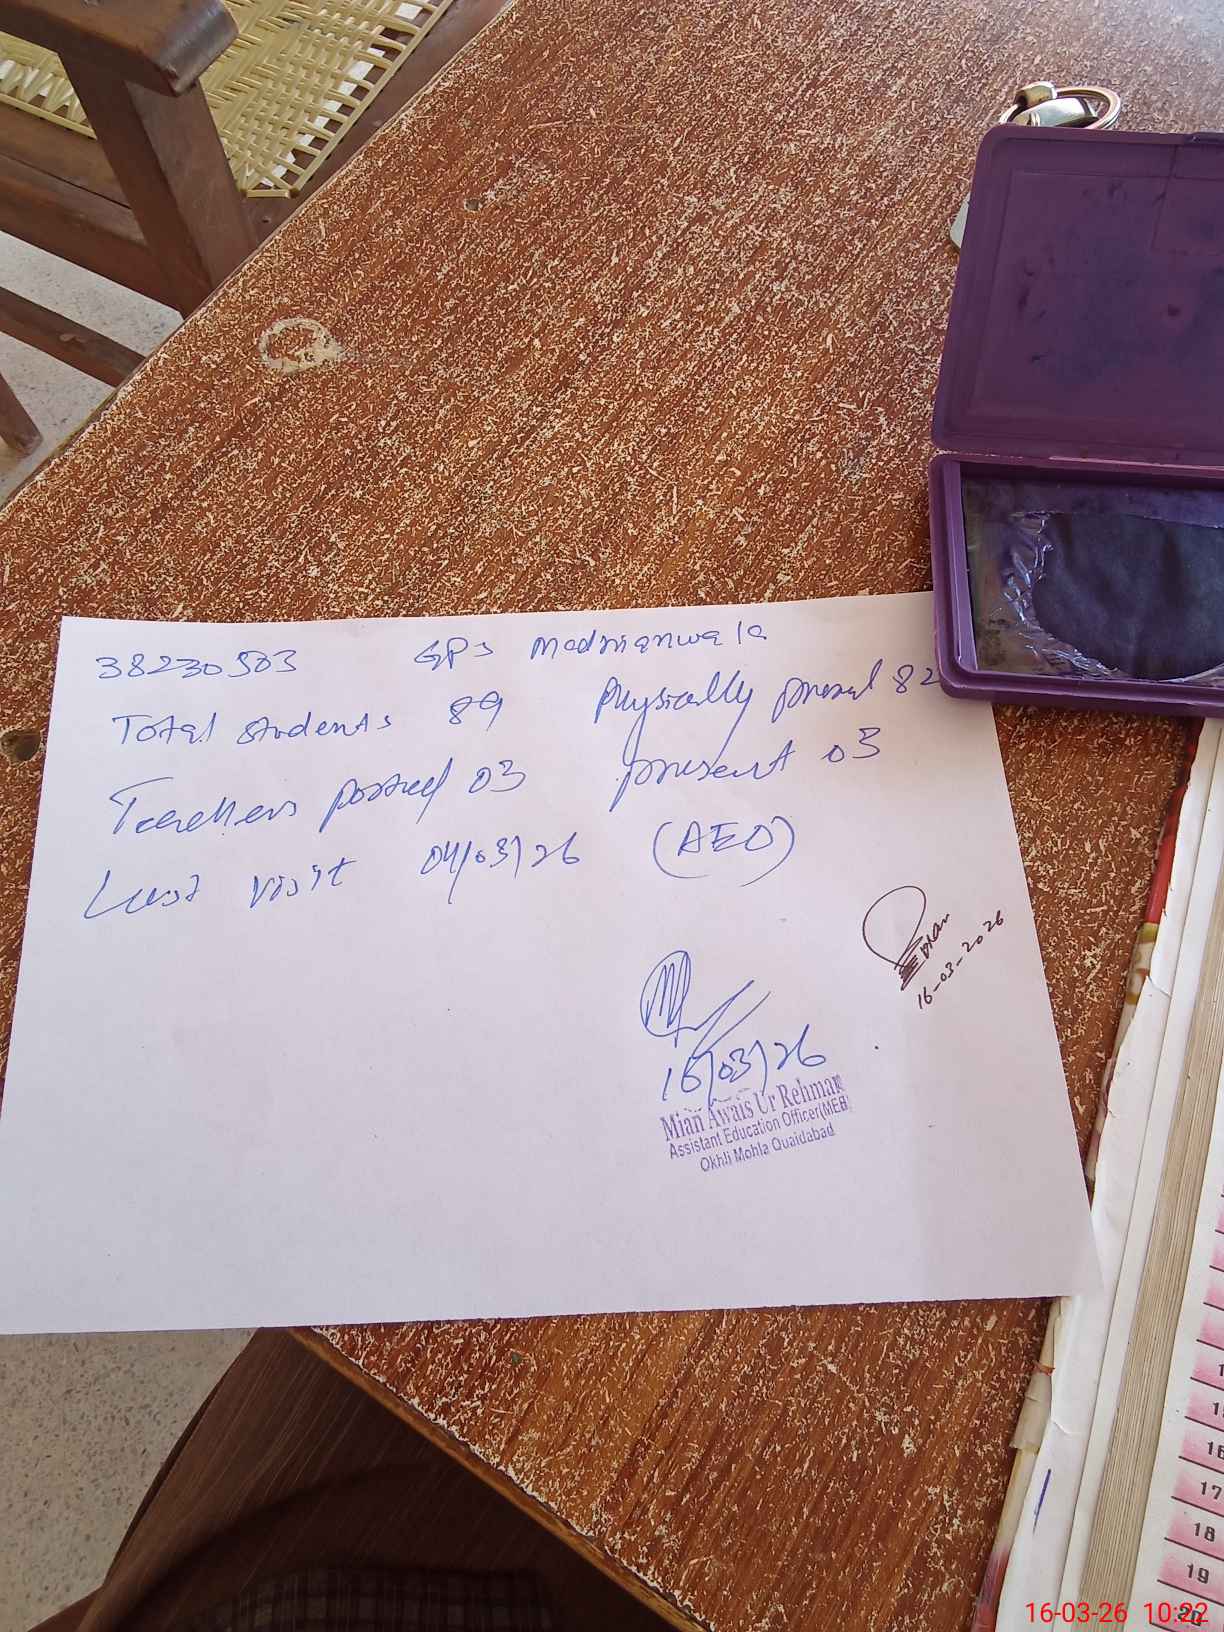 38230503 GPS Madnianwala
Total students 89 Physically present 82
Teachers posted 03 present 03
Last visit 04/03/26 (AEO)
16-03-2026
16/03/26
Mian Awais Ur Rehman
Assistant Education Officer(MEB
Okhli Mohla Quaidabad
16
17
18
19
20
16-03-26 10:22